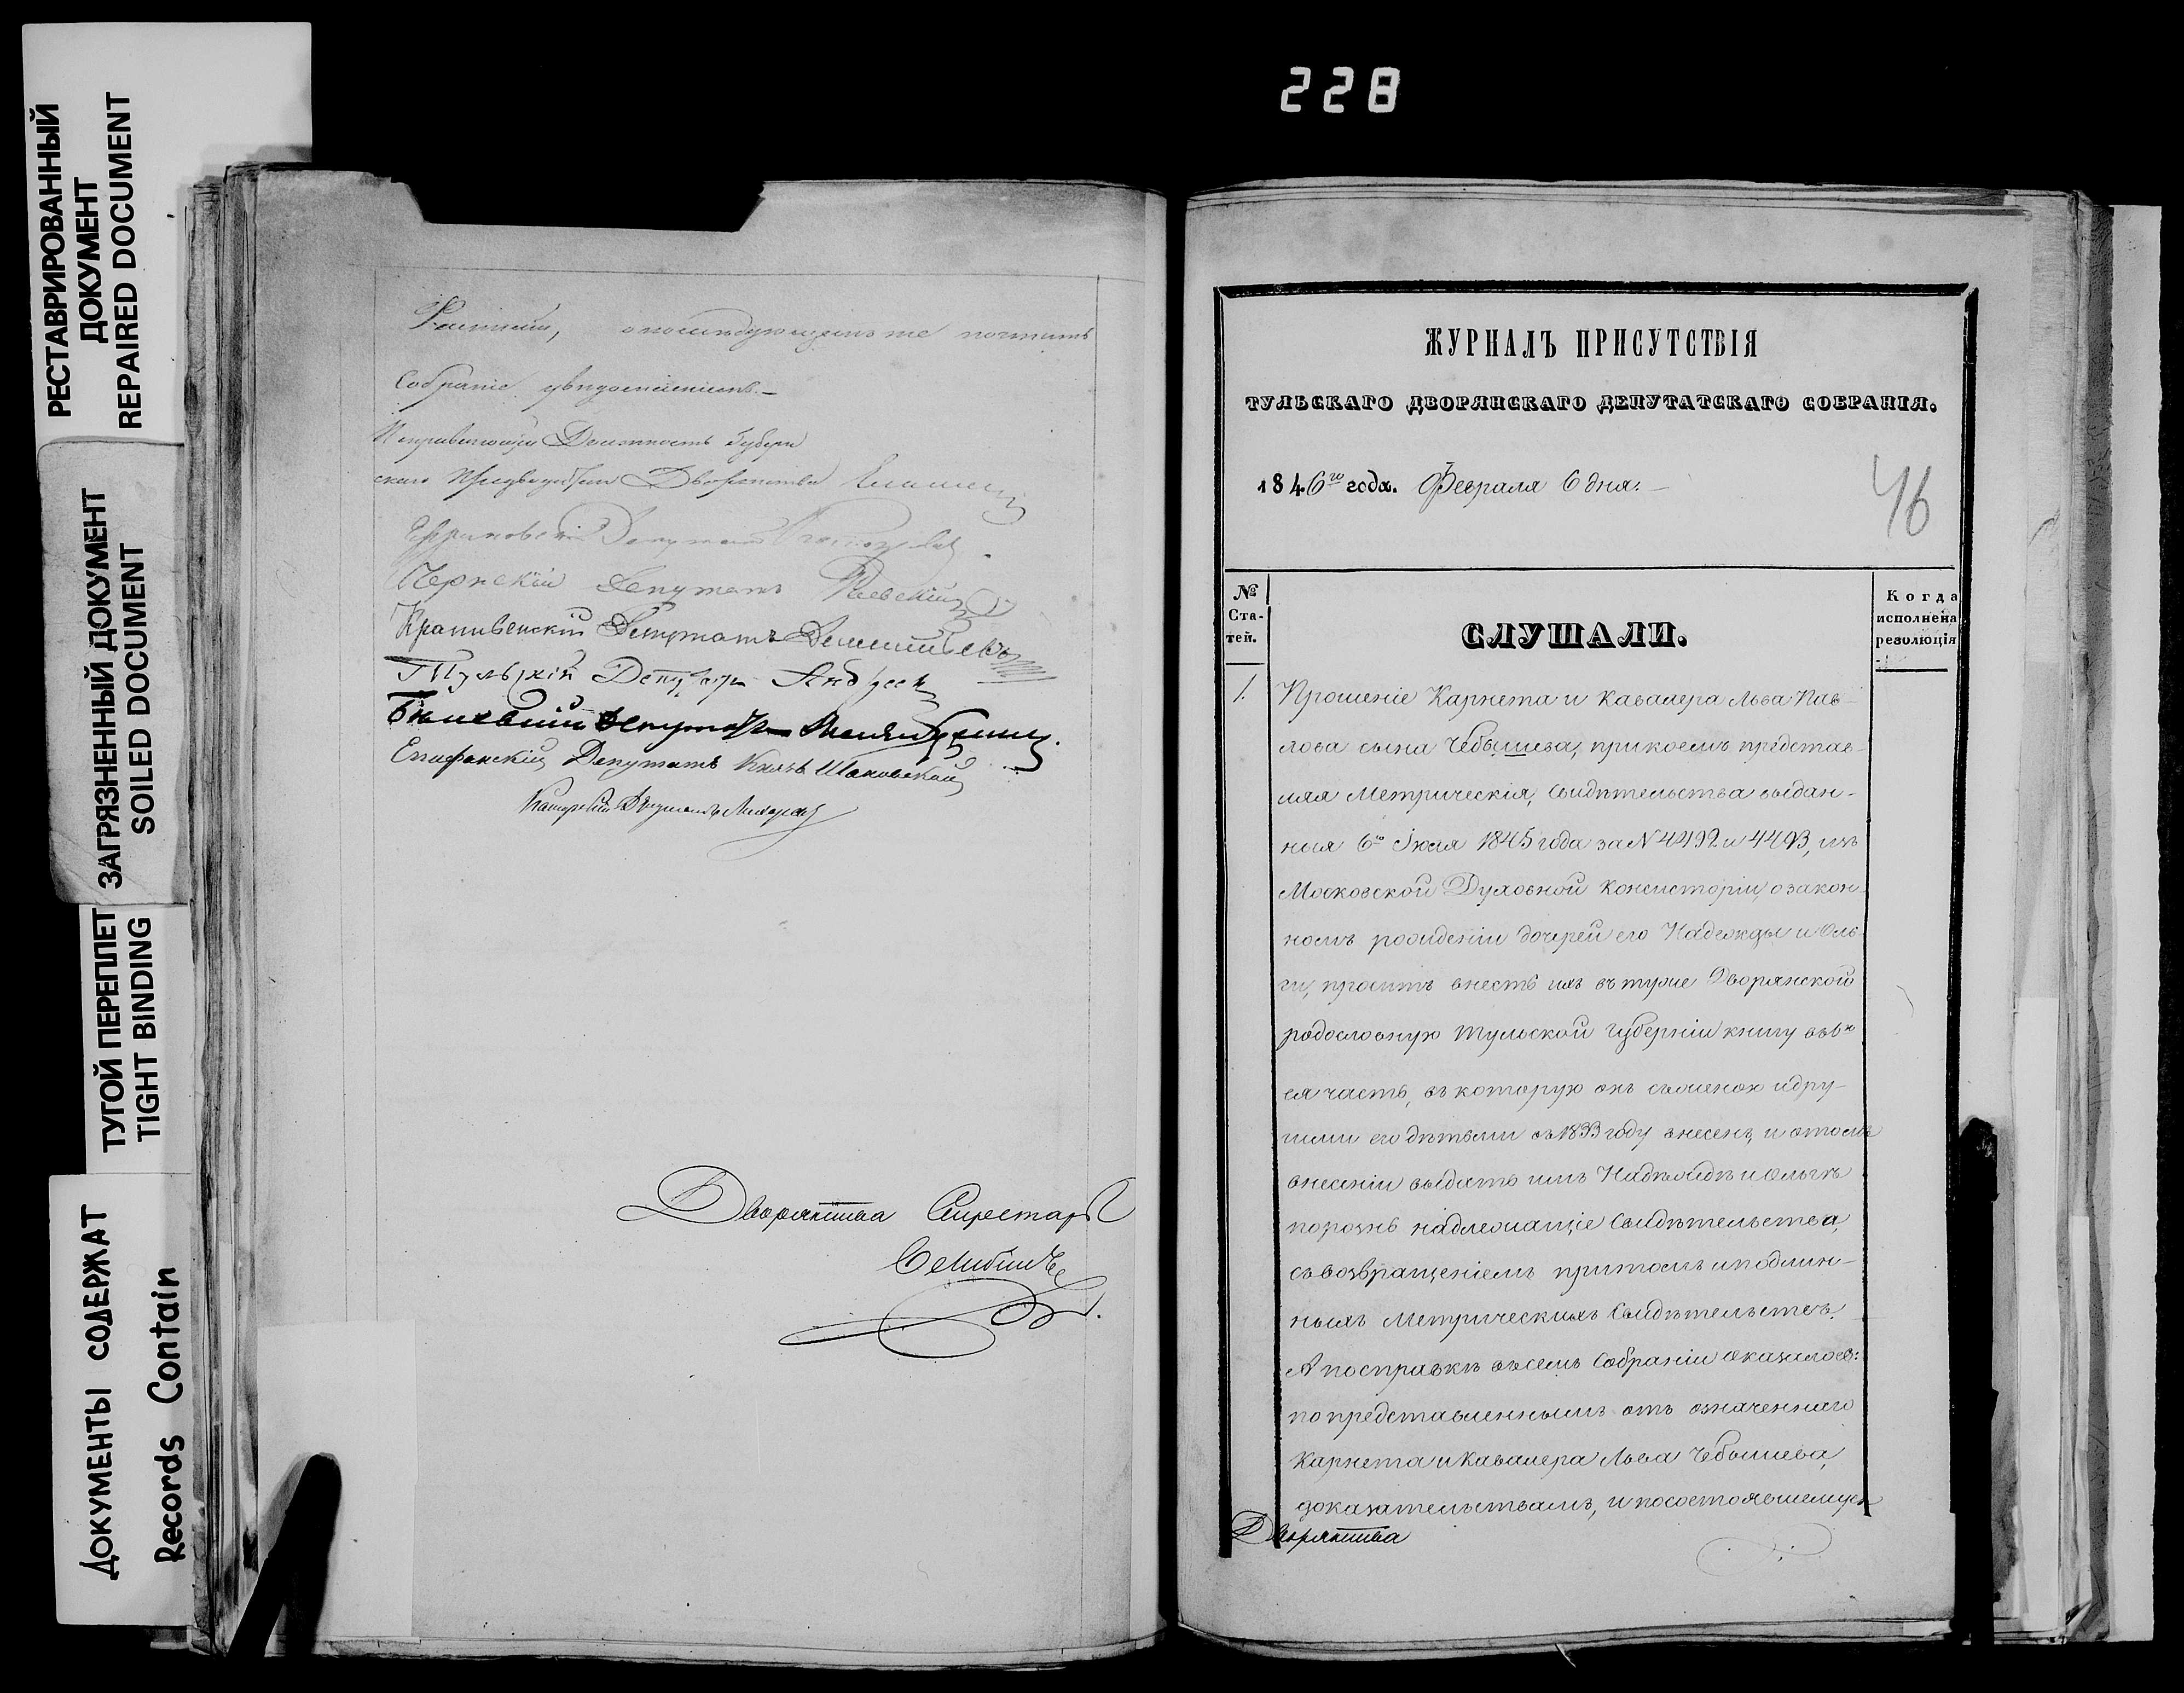 228
РЕСТАВРИРОВАННЫЙ
ДОКУМЕНТ
REPAIRED DOCUMENT
ЗАГРЯЗНЕННЫЙ ДОКУМЕНТ
SOILED DOCUMENT
ТУГОЙ ПЕРЕПЛЕТ
TIGHT BINDING
ДОКУМЕНТЫ СОДЕРЖАТ
Records Contain
Собраніе увѣдомленіемъ.—
Исправляющій Должность Губерн
скаго Предводителя Дворянства
Депутатъ
Чернскій Депутатъ Раевскій
Крапивенскій Депутатъ
Тульскій Депутатъ
Бѣлевскій Депутатъ
Епифанскій Депутатъ Князь Шаховской
Каширскій Депутатъ
Дворянства Секретарь
ЖУРНАЛЪ ПРИСУТСТВІЯ
ТУЛЬСКАГО ДВОРЯНСКАГО ДЕПУТАТСКАГО СОБРАНІЯ.
1846го года. Февраля 6 дня.—
46
№
Ста-
тей.
СЛУШАЛИ.
Когда
исполнена
резолюція
1.
Прошеніе Карнета и Кавалера Льва Пав-
лова сына Чебышева, при коемъ представ-
ляя Метрическія, Свидѣтельства выдан-
ныя 6го Іюля 1845 года за N 4492 и 4493, изъ
Московской Духовной Консисторіи, о закон-
номъ рожденіи дочерей его Надежды и Оль-
ги, проситъ внесть ихъ въ туже Дворянской
родословную Тульской Губерніи книгу въ
ея часть, въ которую онъ съ женою и дру-
гими его дѣтьми въ 1833 году внесенъ, и о томъ
внесеніи выдать имъ Надѣждѣ и Ольгѣ
порознь надлежащіе Свидѣтельства,
съ возвращеніемъ притомъ и подлин-
ныхъ Метрическихъ Свидѣтельствъ.
А по справкѣ въ семъ Собраніи оказалось:
по представленнымъ отъ означеннаго
Карнета и Кавалера Льва Чебышева,
доказательствамъ, и по состоявшемуся
Дворянства